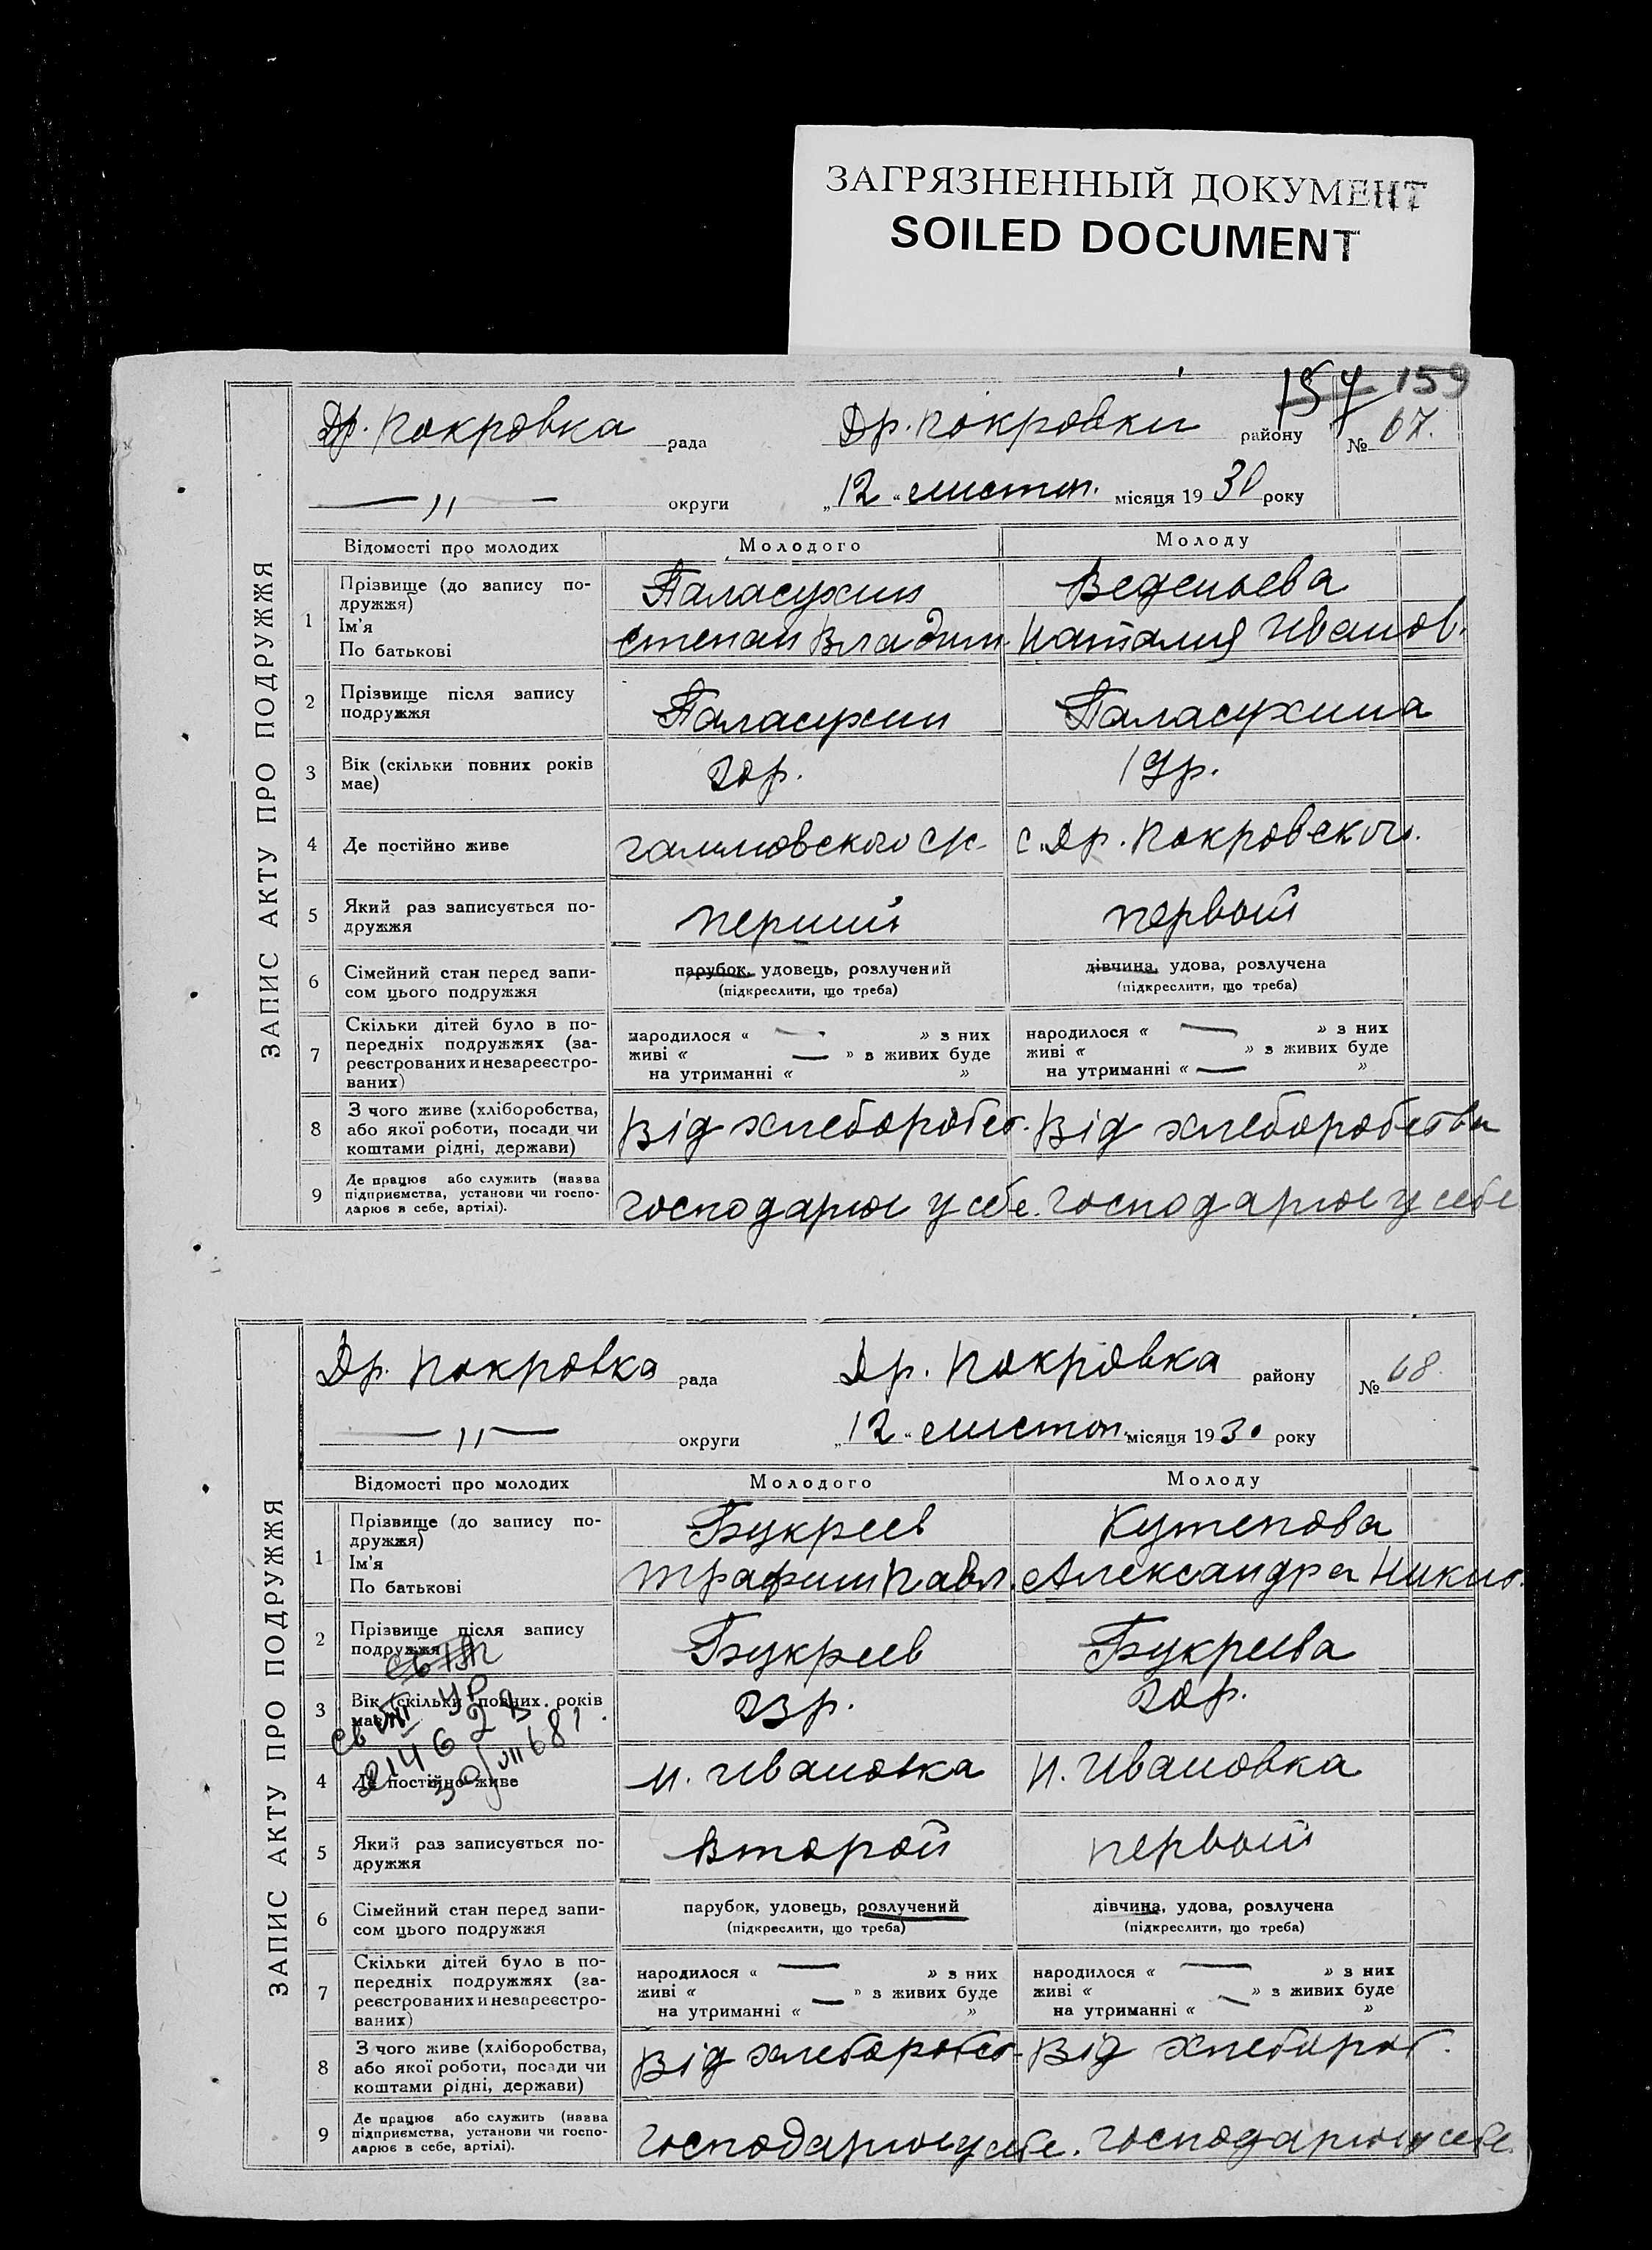 ЗАГРЯЗНЕННЫЙ ДОКУМЕНТ
SOILED DOCUMENT
157 159
ЗАПИС АКТУ ПРО ПОДРУЖЖЯ
Др. Покровка рада Др. Покровки району № 67.
—„— округи „12“ листоп. місяця 1930 року
Відомості про молодих Молодого Молоду
1 Прізвище (до запису по-
дружжя)
Ім'я
По батькові
Паласухин Веденьева
Степан Владим. Наталия Иванов.
2 Прізвище після запису
подружжя
Паласухин Паласухина
3 Вік (скільки повних років
має)
20р. 19р.
4 Де постійно живе с. Др. Покровского.
5 Який раз записується по-
дружжя
перший первый
6 Сімейний стан перед запи-
сом цього подружжя
парубок, удовець, розлучений дівчина, удова, розлучена
(підкреслити, що треба) (підкреслити, що треба)
7 Скільки дітей було в по-
передніх подружжях (за-
реєстрованих и незареєстро-
ваних)
народилося « — » з них народилося « — » з них
живі « — » з живих буде живі « » з живих буде
на утриманні « » на утриманні « — »
8 З чого живе (хліборобства,
або якої роботи, посади чи
коштами рідні, держави)
Від хлеборобст. Від хлеборобства
9 Де працює або служить (назва
підприємства, установи чи госпо-
дарює в себе, артілі).
господарює у себе. господарює у себе
ЗАПИС АКТУ ПРО ПОДРУЖЖЯ
Др. Покровка рада Др. Покровка району № 68.
—„— округи „12“ листоп. місяця 1930 року
Відомості про молодих Молодого Молоду
1 Прізвище (до запису по-
дружжя)
Ім'я
По батькові
Букреев Кутепова
Трафим Павл. Александра Никит.
2 Прізвище після запису
подружжя
Букреев Букреева
3 Вік (скільки повних років
має)
23р. 20р.
4 Де постійно живе
Н. Ивановка Н. Ивановка
5 Який раз записується по-
дружжя
второй первый
6 Сімейний стан перед запи-
сом цього подружжя
парубок, удовець, розлучений дівчина, удова, розлучена
(підкреслити, що треба) (підкреслити, що треба)
7 Скільки дітей було в по-
передніх подружжях (за-
реєстрованих и незареєстро-
ваних)
народилося « — » з них народилося « — » з них
живі « » з живих буде живі « » з живих буде
на утриманні « — » на утриманні « — »
8 З чого живе (хліборобства,
або якої роботи, посади чи
коштами рідні, держави)
Від хлеборобст. Від хлебороб.
9 Де працює або служить (назва
підприємства, установи чи госпо-
дарює в себе, артілі).
господарює у себе. господарює у себе.